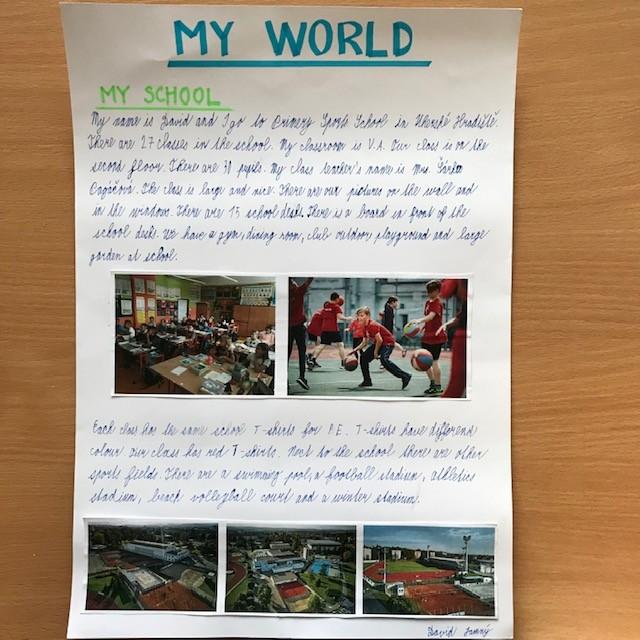 MY WORLD
MY SCHOOL
My name is David and I go to Primary Sports School in Uherské Hradiště.
There are 27 classes in the school. My classroom is V.A. Our class is on the
second floor. There are 30 pupils. My class teacher's name is Mrs. Šárka
Cagáčová. The class is large and nice. There are our pictures on the wall and
in the windows. There are 15 school desks. There is a board in front of the
school desks. We have a gym, dining room, club outdoor playground and large
garden at school.
Each class has the same school T-shirts for P.E. T-shirts have different
colour our class has red T-shirts. Next to the school there are other
sports fields. There are a swimming pool, a football stadium, athletics
stadium, beach volleyball court and a winter stadium.
David